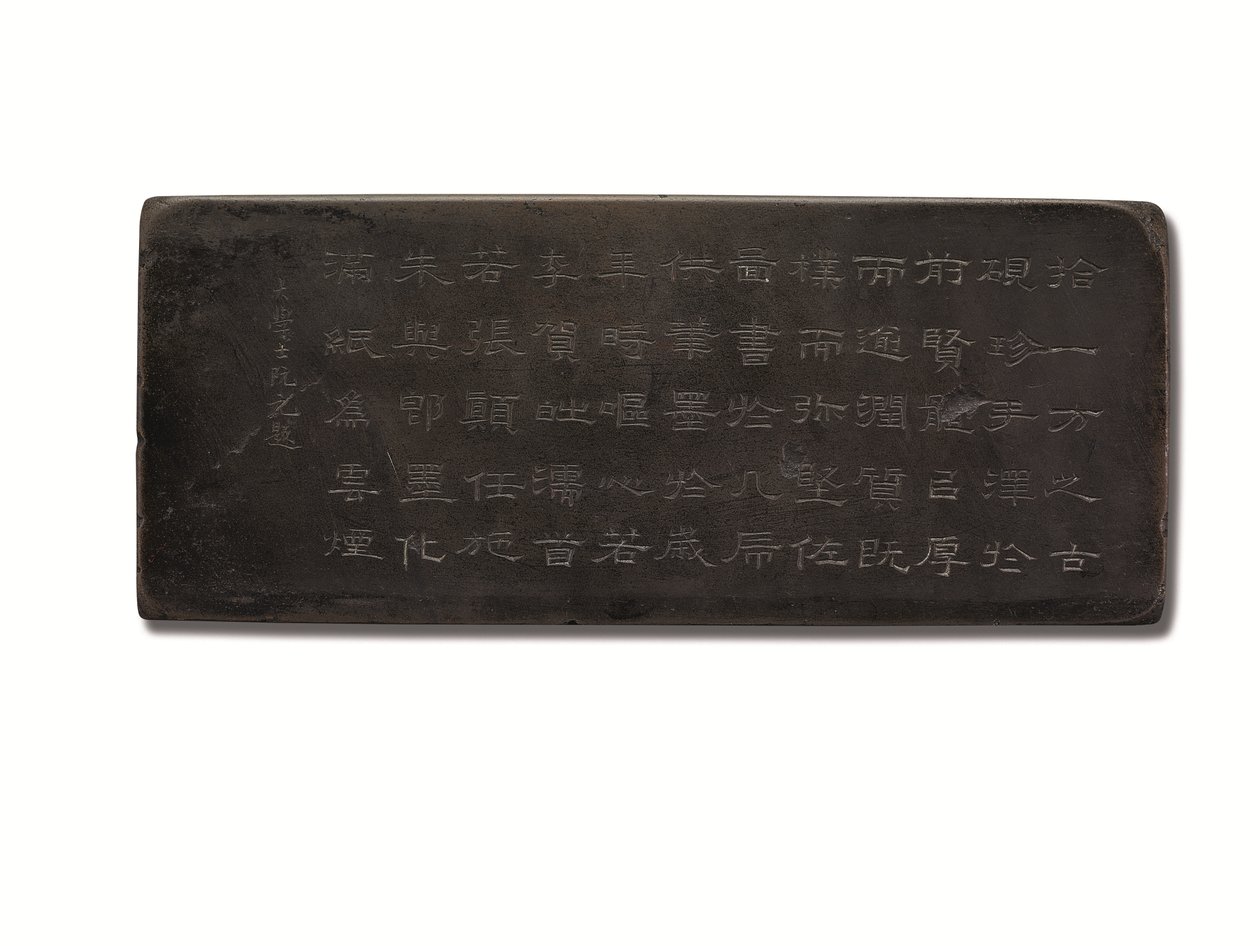 拾一方之古
硯珍手澤於
前賢體已厚
而逾潤質既
樸而弥堅佐
啚書於几席
供筆墨於歲
年時嘔心若
李賀或濡首
若張顛任施
朱與即墨化
滿紙為雲煙
大學士阮元題